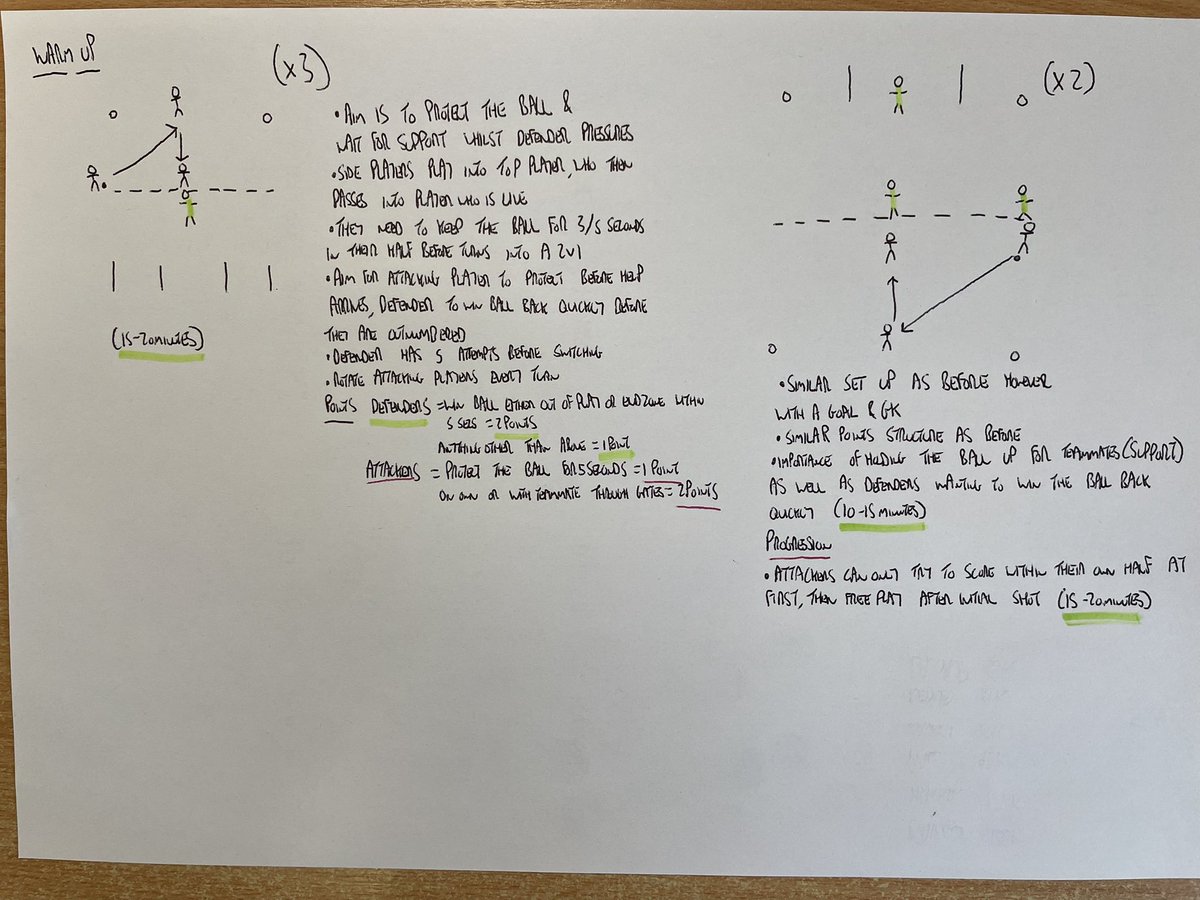 WARM UP
(x3)
(15-20 MINUTES)
• AIM IS TO PROTECT THE BALL &
WAIT FOR SUPPORT WHILST DEFENDER PRESSURES
• SIDE PLAYERS PLAY INTO TOP PLAYER, WHO THEN
PASSES INTO PLAYER WHO IS LIVE
• THEY NEED TO KEEP THE BALL FOR 3/5 SECONDS
IN THEIR HALF BEFORE TURNS INTO A 2V1
• AIM FOR ATTACKING PLAYER TO PROTECT BEFORE HELP
ARRIVES, DEFENDER TO WIN BALL BACK QUICKLY BEFORE
THEY ARE OUTNUMBERED
• DEFENDER HAS 5 ATTEMPTS BEFORE SWITCHING
• ROTATE ATTACKING PLAYERS EVERY TURN
POINTS DEFENDERS = WIN BALL EITHER OUT OF PLAY OR ENDZONE WITHIN
5 SECS = 2 POINTS
ANYTHING OTHER THAN ABOVE = 1 POINT
ATTACKERS = PROTECT THE BALL FOR 5 SECONDS = 1 POINT
ON OWN OR WITH TEAMMATE THROUGH GATES = 2 POINTS
(x2)
• SIMILAR SET UP AS BEFORE HOWEVER
WITH A GOAL & GK
• SIMILAR POINTS STRUCTURE AS BEFORE
• IMPORTANCE OF HOLDING THE BALL UP FOR TEAMMATES (SUPPORT)
AS WELL AS DEFENDERS WANTING TO WIN THE BALL BACK
QUICKLY (10-15 MINUTES)
PROGRESSION
• ATTACKERS CAN ONLY TRY TO SCORE WITHIN THEIR OWN HALF AT
FIRST, THEN FREE PLAY AFTER INITIAL SHOT (15-20 MINUTES)